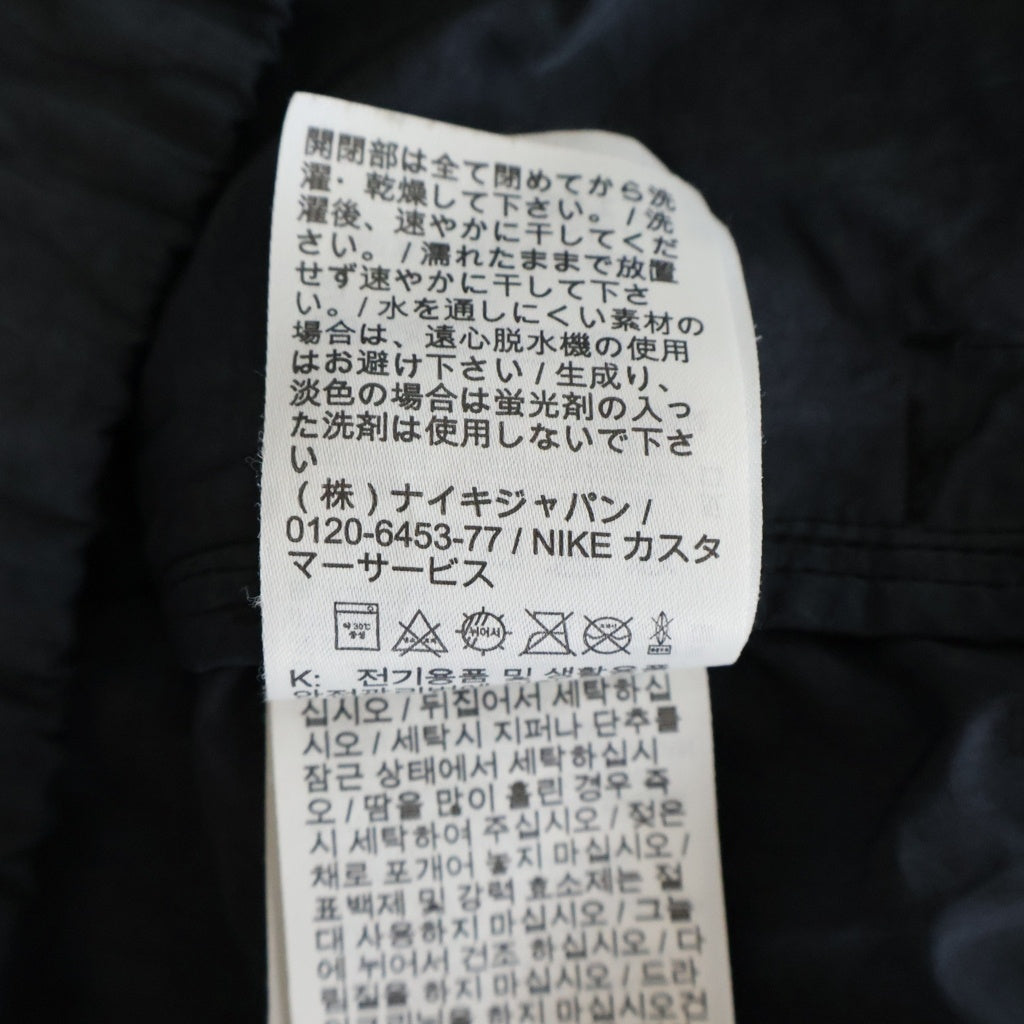 開閉部は全て閉めてから洗
濯・乾燥して下さい。/洗
濯後、速やかに干してくだ
さい。/濡れたままで放置
せず速やかに干して下さ
い。/水を通しにくい素材の
場合は、遠心脱水機の使用
はお避け下さい/生成り、
淡色の場合は蛍光剤の入っ
た洗剤は使用しないで下さ
い
(株)ナイキジャパン/
0120-6453-77 / NIKE カスタ
マーサービス
약 30℃
중성
뉘어서
K: 전기용품 및 생활용품
십시오 / 뒤집어서 세탁하십
시오 / 세탁시 지퍼나 단추를
잠근 상태에서 세탁하십시
오 / 땀을 많이 흘린 경우 즉
시 세탁하여 주십시오 / 젖은
채로 포개어 놓지 마십시오 /
표백제 및 강력 효소제는 절
대 사용하지 마십시오 / 그늘
에 뉘어서 건조 하십시오 / 다
림질을 하지 마십시오 / 드라